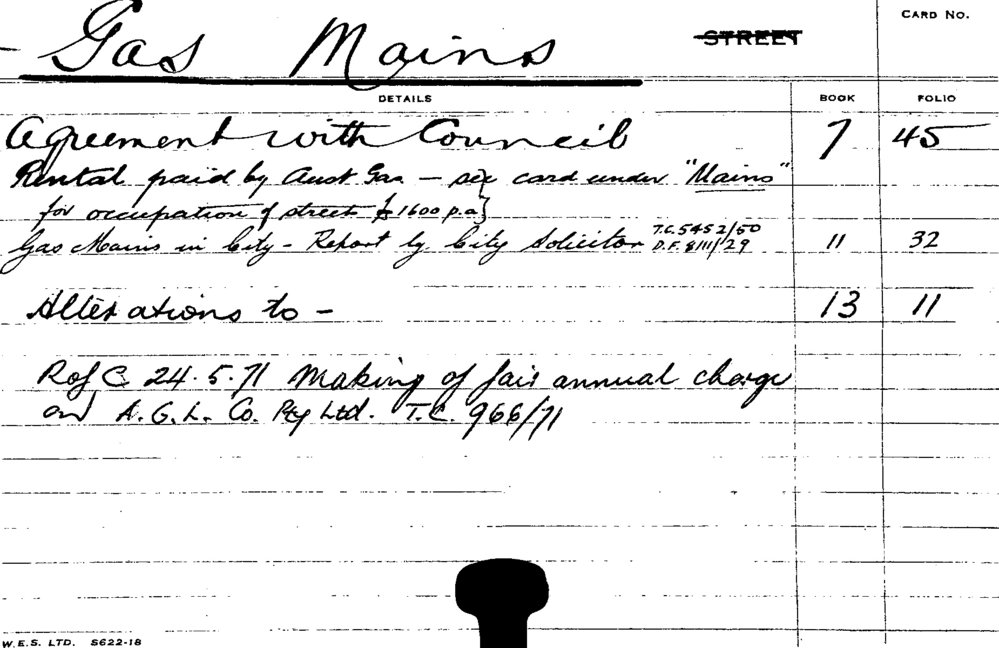 CARD NO.
Gas Mains STREET
DETAILS BOOK FOLIO
Agreement with Council 7 45
Rental paid by Aust Gas – see card under "Mains"
for occupation of street £1600 p.a}
Gas Mains in City – Report by City Solicitor T.C. 5452/50 D.F. 8111/29 11 32
Alterations to – 13 11
R of C 24.5.71 Making of fair annual charge
on A.G.L. Co. Pty Ltd. T.C. 966/71
W.E.S. LTD. S622-18